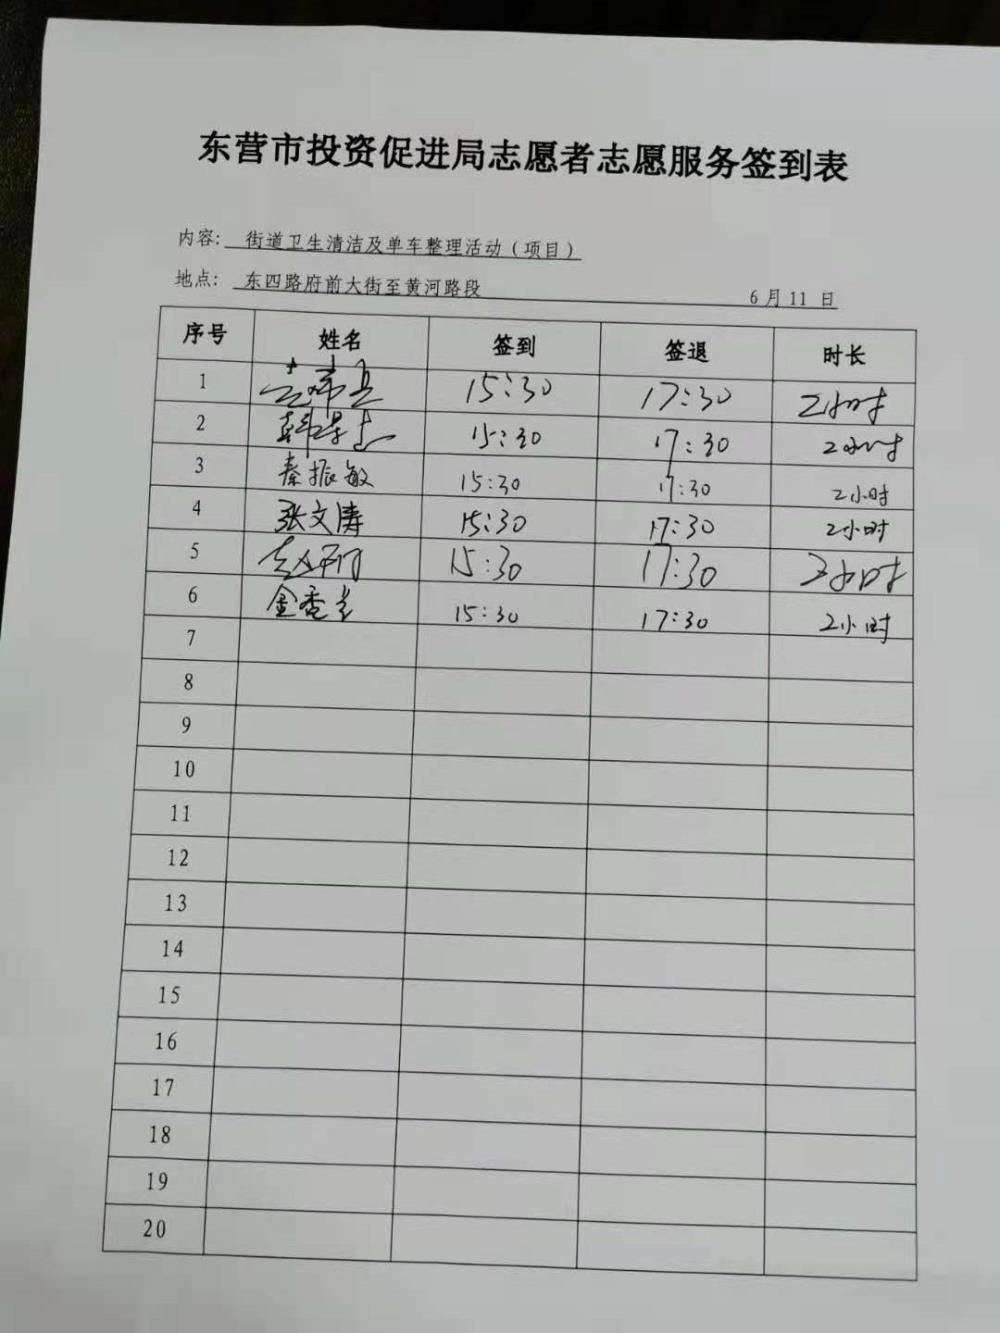 东营市投资促进局志愿者志愿服务签到表
内容: 街道卫生清洁及单车整理活动(项目)
地点: 东四路府前大街至黄河路段 6月11日
序号 姓名 签到 签退 时长
1 15:30 17:30 2小时
2 15:30 17:30 2小时
3 秦振敏 15:30 17:30 2小时
4 张文涛 15:30 17:30 2小时
5 15:30 17:30 2小时
6 金香兰 15:30 17:30 2小时
7
8
9
10
11
12
13
14
15
16
17
18
19
20